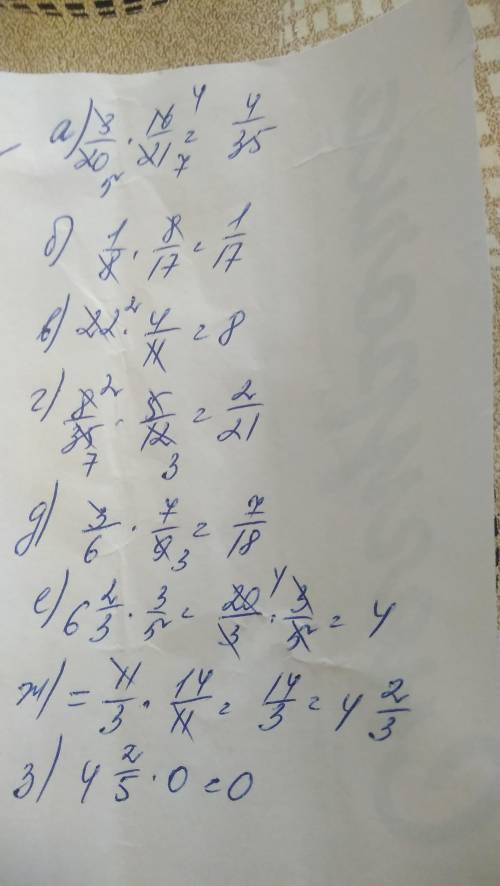 а) 3/20 · 16/21 = 4/35
5 7 4
б) 1/8 · 8/17 = 1/17
в) 22 2 · 4/11 = 8
г) 8/35 · 5/12 = 2/21
2 7 3
д) 3/6 · 7/9 = 7/18
3
е) 6 2/3 · 3/5 = 20/3 · 3/5 = 4
4
ж) = 11/3 · 14/11 = 14/3 = 4 2/3
з) 4 2/5 · 0 = 0